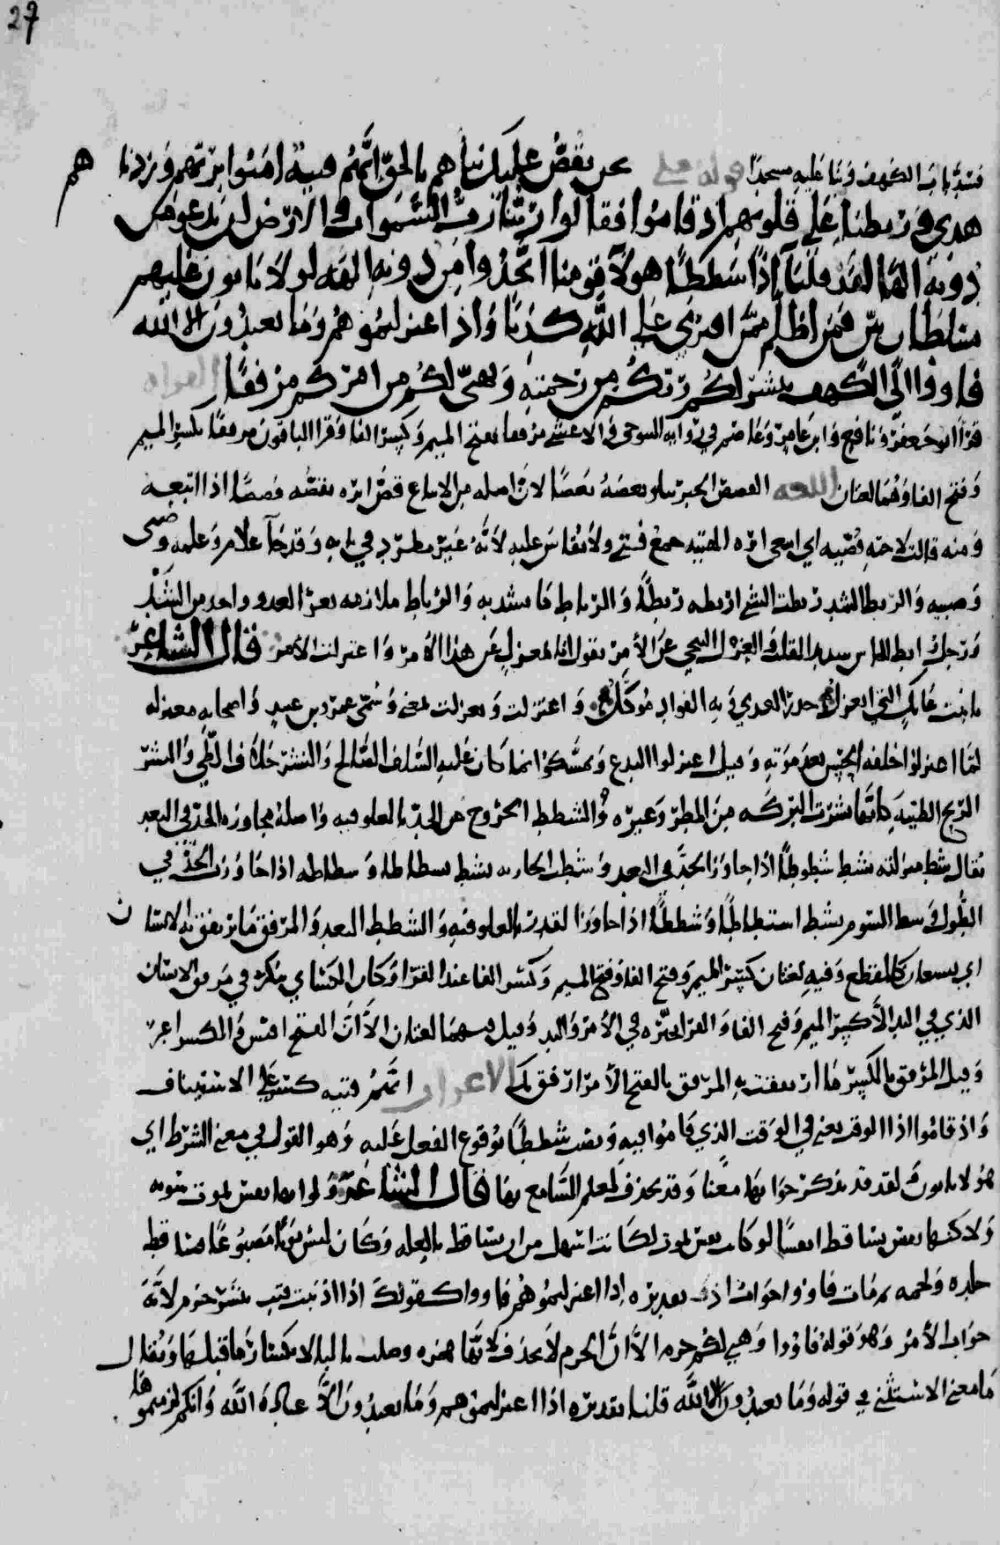 27
فسدّ باب الكهف وبنا عليه مسجدًا قوله تعلى نحن نقصّ عليك نبأهم بالحقّ انَّهم فتية امنوا بربّهم وزدناهم
هدى وربطنا على قلوبهم اذ قاموا فقالوا ربّنا ربّ السّموات والارض لن ندعو من
دونه الهًا لقد قلنا اذًا شططًا هولآ قومنا اتّخذوا من دونه الهة لولا ياتون عليهم
بسلطان بيّن فمن اظلم ممّن افترى على اللّه كذبًا واذ اعتزلتموهم وما يعبدون الا اللّه
فاووا الى الكهف ينشر لكم ربّكم من رحمته ويهيّ لكم من امركم مرفقًا القراه
قرأ ابو جعفر ونافع وابن عامر وعاصم في رواية البرجمي والاعشى مرفقا بفتح الميم وكسر الفا وقرا الباقون مرفقًا بكسر الميم
وفتح الفا وهما لغتان اللغه القصص الخبر يتلو بعضه بعضًا لان اصله من الاتباع قصّ اثره يقصّه قصصًا اذا اتبعه
ومنه قالت لاخته قصّيه اي اتبعي اثره الفتيه جمع فتى ولا يقاس عليه لأنّه غير مطرّد في بابه وقد جآ غلام وغلمه وصبي
وصبيه والربط الشد ربطت الشي اربطه ربطًا والرباط ما يشد به والرباط ملازمه ثغر العدو واحد من الشدّ
ورجل رابط الجاش شديد القلب والعزل التنحي عن الأمر يقول انا بمعزل عن هذا الامر واعتزلت الأمر قال الشاعر
يا بيت عاتكة الذي اتعزل حذر العدى وبه الفواد موكّل واعتزلت وتعزلت بمعنى وسُمّي عمرو بن عبيد واصحابه معتزله
لمّا اعتزلوا حلقة الحسن بعد موته وقيل اعتزلوا البدع وتمسّكوا بما كان عليه السّلف الصّالح والنشر خلاف الطّي والنشر
الريح الطيّبة من المطر وغيره والشطط الخروج عن الحدّ بالغلو فيه واصله مجاوزة الحدّ في البعد
يقال شط منزلته يشط شطوطًا اذا جاوز الحدّ في البعد وشطت الجاريه تشط شطاطا وشطاطه اذا جاوزت الحدّ في
الطّول وشط السّوم يشط اذا جاوز القدر بالغلو فيه والشطط البعد والمرفق ما يرتفق به الانسان
اي يستعان كالمقطع وفيه لغتان كسر الميم وفتح الفا وفتح الميم وكسر الفا عند الفرا وكان الكساي ينكر في مرفق الانسان
الذي في اليد الا كسر الميم وفتح الفا في الأمر واليد وقيل فيهما لغتان الا ان الفتح اقيس والكسر اعرّ
وقيل المرفق بالكسر ما ارتفقت به المرفق بالفتح الأمر الرافق بك الاعراب انّهم فتيه كسر على الاستيناف
واذ قاموا اذ الوقت يعني في الوقت الذي قاموا فيه ونصب شططًا بوقوع الفعل عليه وهو القول في معنى الشرط اي
هولا ياتون لقد قد يذكر جوابها معنًا وقد يحذف لعلم السّامع بها قال الشاعر ولو انها نفس تموت سويه
ولكنها نفس تساقط انفسًا لو كانت نفس تموت لكانت اسهل من ان تساقط بالعله وكان ليس
جلده ولحمه فاووا جواب اذ تقديره اذا اعتزلتموهم فاووا كقولك اذا اذنبت فتب ينشر جزم لأنّه
جواب الأمر وهو قوله فاووا ويهي لكم جزم الا ان الجزم لا يحذف لانّها همزه وصلت باليا لانكسار ما قبلها ويقال
ما معنى الاستثنى في قوله وما يعبدون الا اللّه قلنا تقديره اذا اعتزلتموهم وما يعبدون الّا عبادة اللّه ولكم لزمتموها